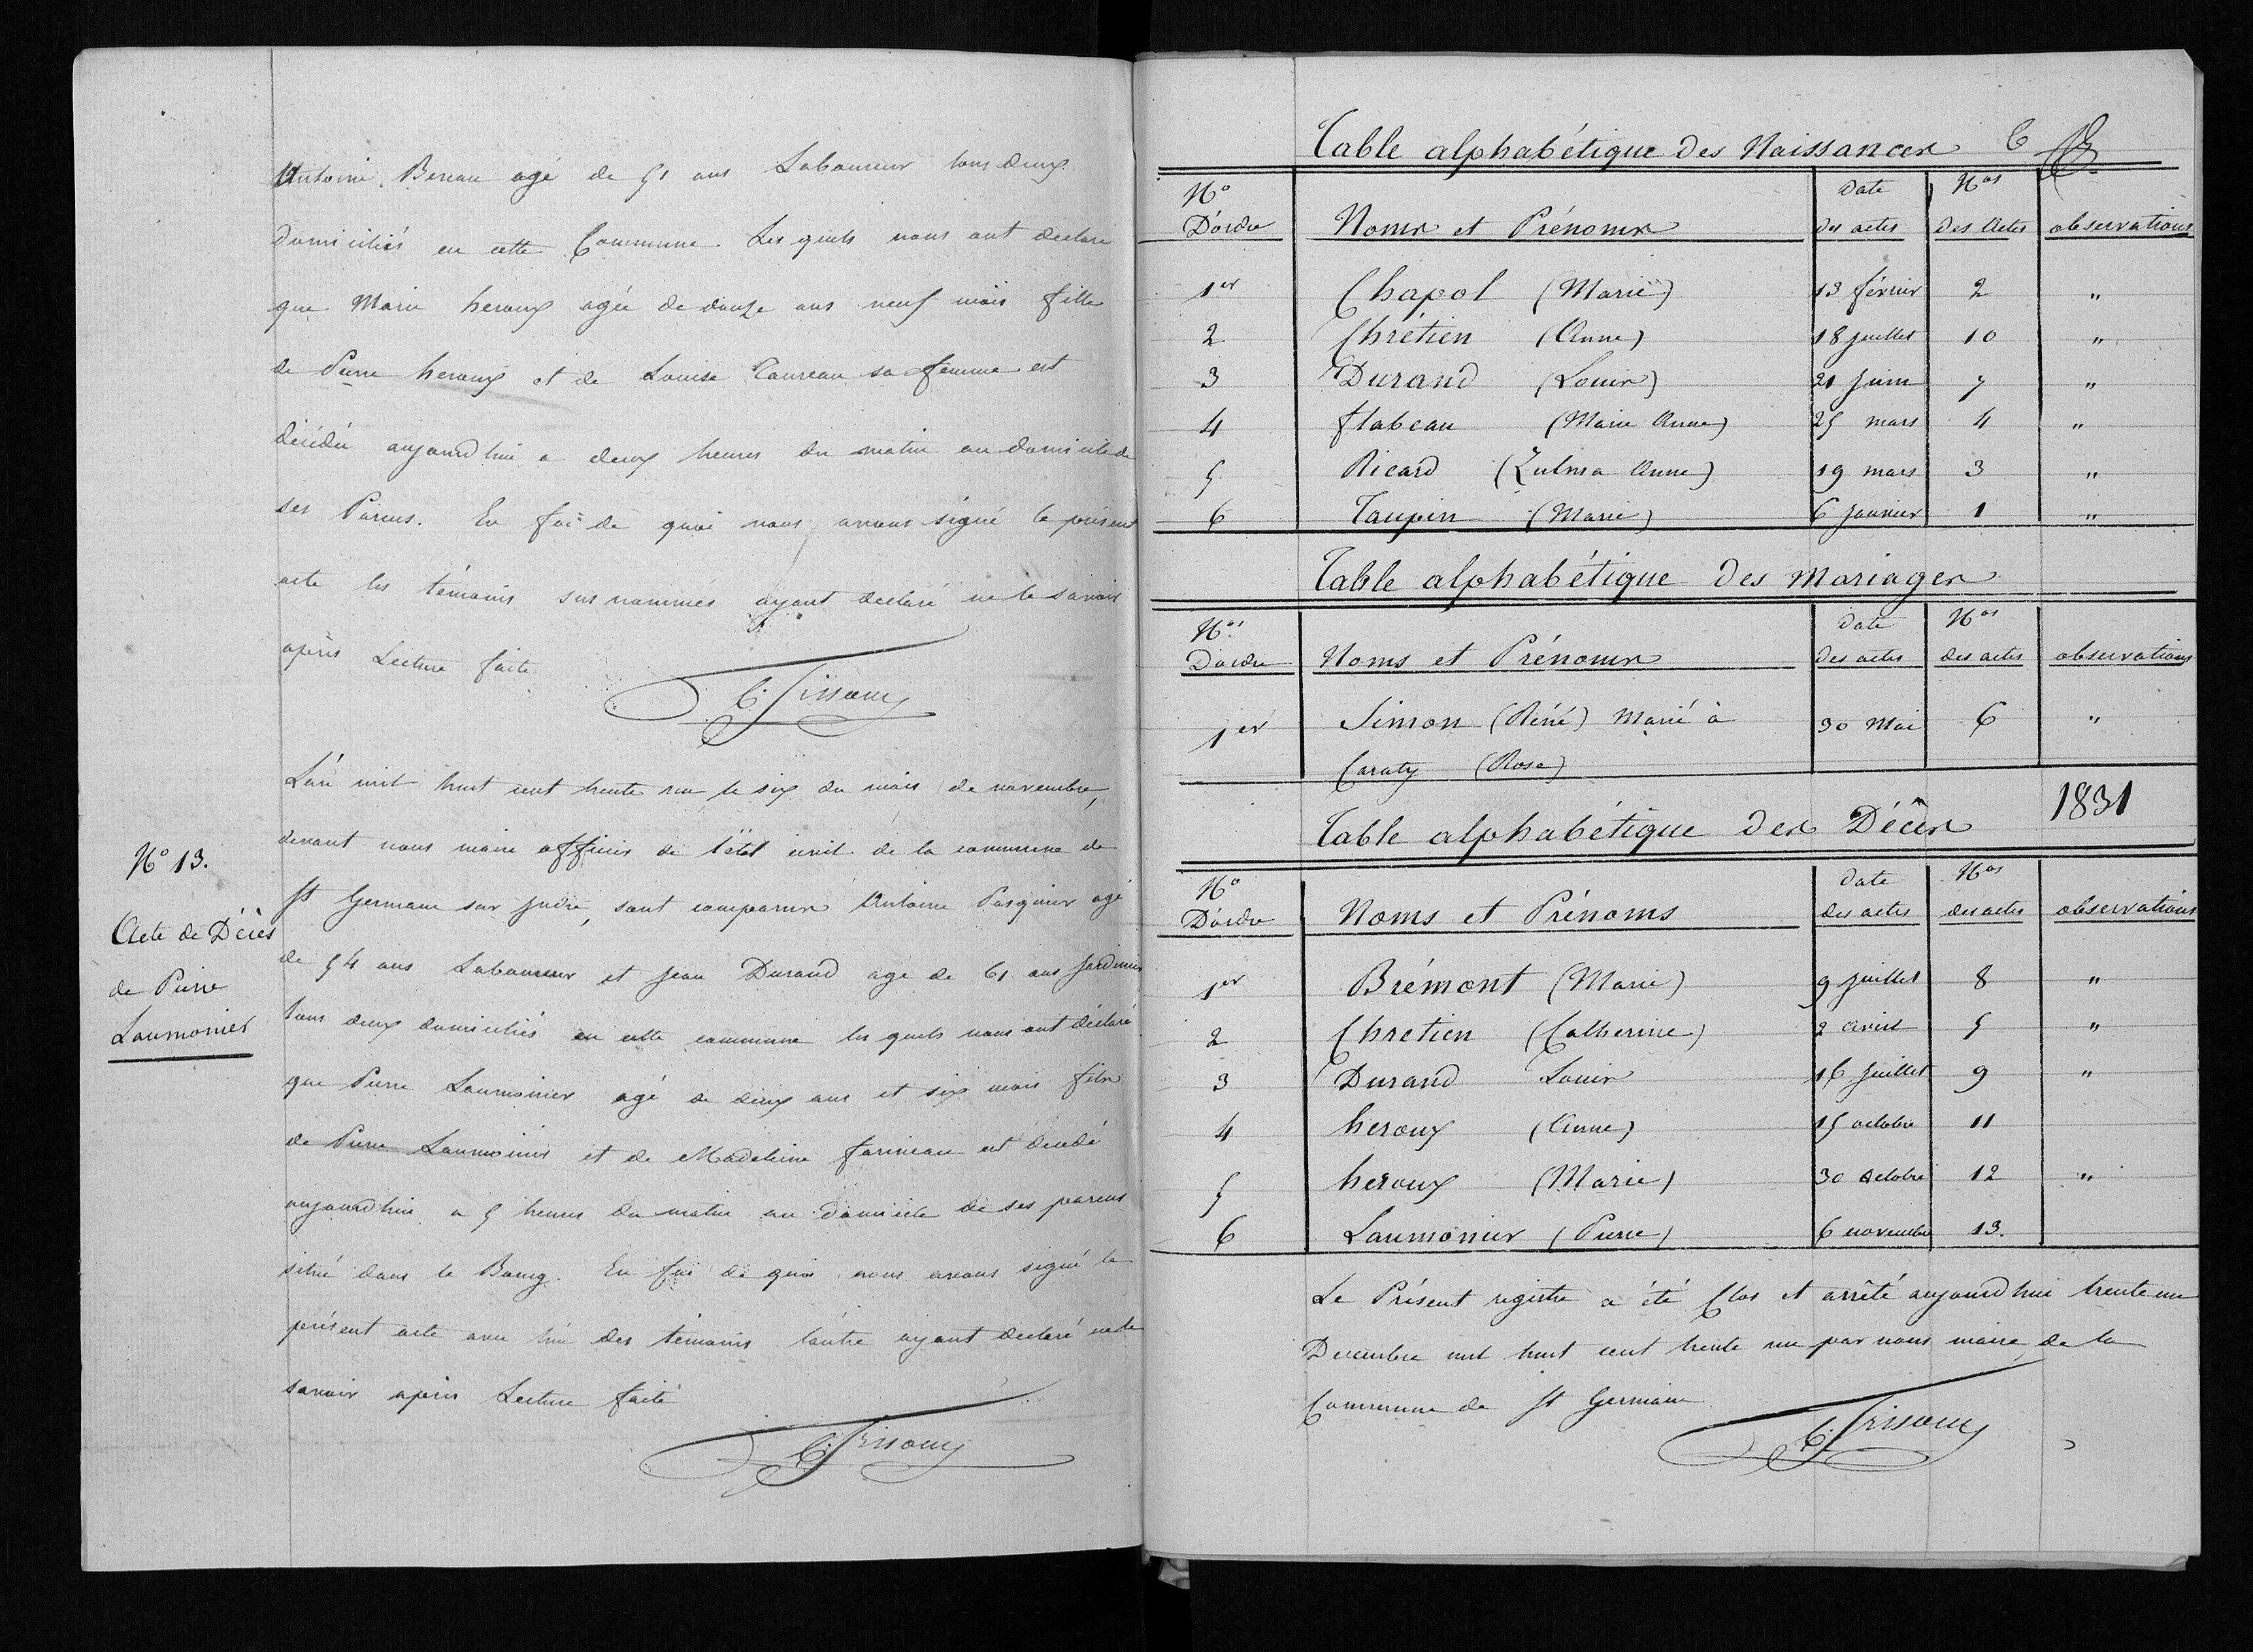 Antoine Bereau agé de 51 ans Laboureur tous deux
domiciliés en cette Commune. Les quels nous ont declaré
que Marie heroux agée de douze ans neuf mois fille
de Pierre heroux et de Louise Taureau sa femme est
décédée aujourd'hui a deux heures du matin au domicile de
ses Parens. En foi de quoi nous avons signé le présent
acte les témoins sus nommés ayant declaré ne le savoir
après Lecture faite
L'an mil huit cent trente un le six du mois de novembre,
devant nous maire officier de l'état civil de la commune de
St Germain sur Indre, sont comparus Antoine Pasquier agé
de 54 ans Laboureur et Jean Durand age de 61 ans jardinier
tous deux domiciliés en cette commune les quels nous ont déclaré
que Pierre Laumonier agé de deux ans et six mois fils
de Pierre Laumonier et de Madeleine farineau est decedé
aujourdhui a 5 heures du matin au domicile de ses parens
situé dans le Bourg. En foi de quoi nous avons signé le
présent acte avec l'un des témoins l'autre ayant declaré ne le
savoir après Lecture faite
N° 13.
Acte de Décès
de Pierre
Laumonier
Table alphabétique des Naissances 6
N° D'ordre Noms et Prénoms Date des actes Nos des Actes observations
1er Chapol (Marie) 13 février 2 "
2 Chrétien (Anne) 18 juillet 10 "
3 Durand (Louis) 21 Juin 7 "
4 flabeau (Marie Anne) 25 mars 4 "
5 Ricard (Zulma Anne) 19 mars 3 "
6 Taupin (Marie) 6 janvier 1 "
Table alphabétique des Mariages
Nos D'ordre Noms et Prénoms Date des actes Nos des actes observations
1er Simon (Réné) Marié à 30 Mai 6 "
Caraty (Rose)
Table alphabétique des Décès 1831
N° D'ordre Noms et Prénoms Date des actes Nos des actes observations
1er Brémont (Marie) 9 juillet 8 "
2 Chretien (Catherine) 2 avril 5 "
3 Durand Louis 16 juillet 9 "
4 heroux (Anne) 15 octobre 11
5 heroux (Marie) 30 octobre 12 "
6 Laumonier (Pierre) 6 novembre 13.
Le Présent registre a été Clos et arrêté aujourd'hui trente un
Decembre mil huit cent trente un par nous maire de la
Commune de St Germain